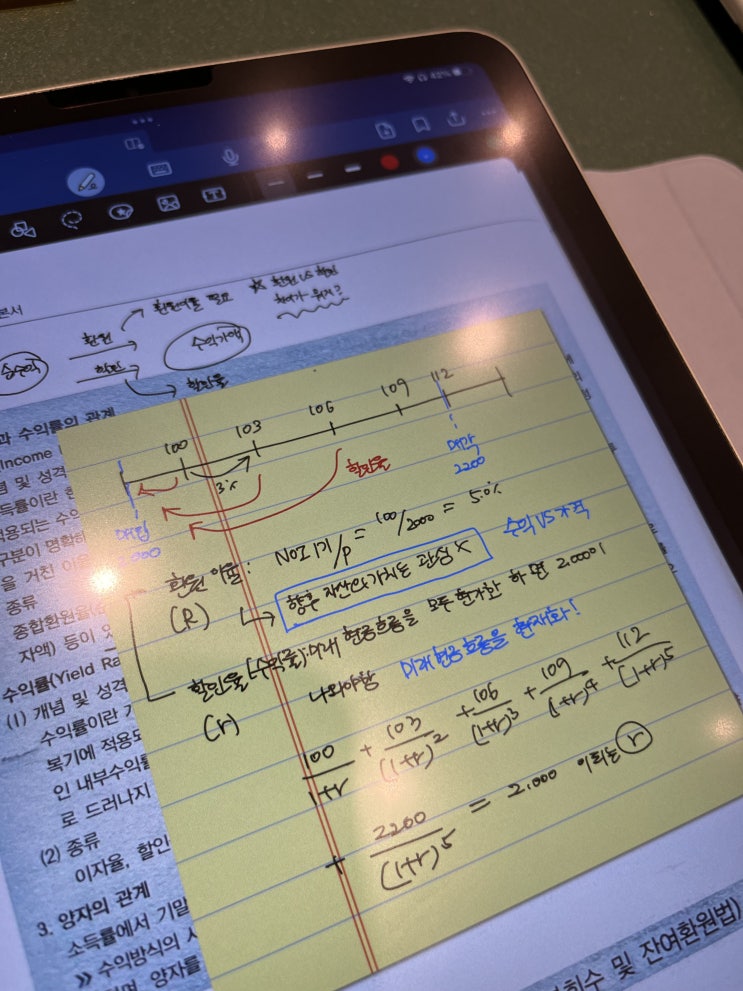 42%
본서
환원 → 환원이율 필요 ☆ 환원 VS 할인
차이가 뭐지?
순수익 수익가액
할인 → 할인율
과 수익률의 관계
Income
념 및 성격
득률이란
적용되는 수익
구분이 명확하
을 거친 이
종류
종합환원율(
자액) 등이 있
수익률(Yield Ra
(1) 개념 및 성격
수익률이란 기
복기에 적용되
인 내부수익률
로 드러나지
(2) 종류
이자율, 할인
3. 양자의 관계
소득률에서 기말
» 수익방식의 시
며, 양자를
100 103 106 109 112
3%
할인율
매입
000
매각
2200
환원이율 : NOI 1기/P = 100/2000 = 5.0%
(R) ↳ 향후 자산의 가치는 관심 X 수익 VS 가격
할인율(수익률):미래 현금흐름을 모두 현가화 하면 2,000이
(r) 나와야함 미래현금흐름을 현재화!
100/1+r + 103/(1+r)² + 106/(1+r)³ + 109/(1+r)⁴ + 112/(1+r)⁵
+ 2200/(1+r)⁵ = 2,000 이 되는 r
회수 및 잔여환원법)